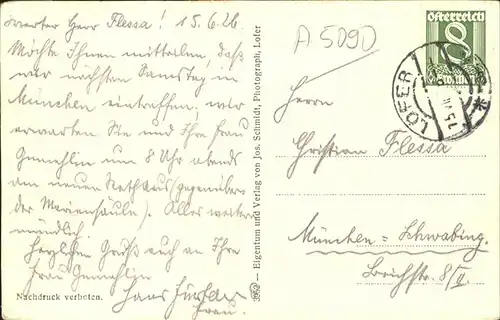 Werter Herr Flessa! 15.6.26.
Möchte Ihnen mitteilen, daß
wir nächsten Samstag in
München eintreffen. Wir
erwarten Sie und Ihre Frau
Gemahlin um 8 Uhr abends
am neuen Rathaus (gegenüber
der Mariensäule). Alles weitere
mündlich.
Herzlichen Gruß auch an Ihre
Frau Gemahlin
Hans
Frau.
Nachdruck verboten.
Eigentum und Verlag von Jos. Schmidt, Photograph, Lofer
A 5090
Österreich
8
Groschen
LOFER
Herrn
Christian Flessa
München = Schwabing.
8/II.